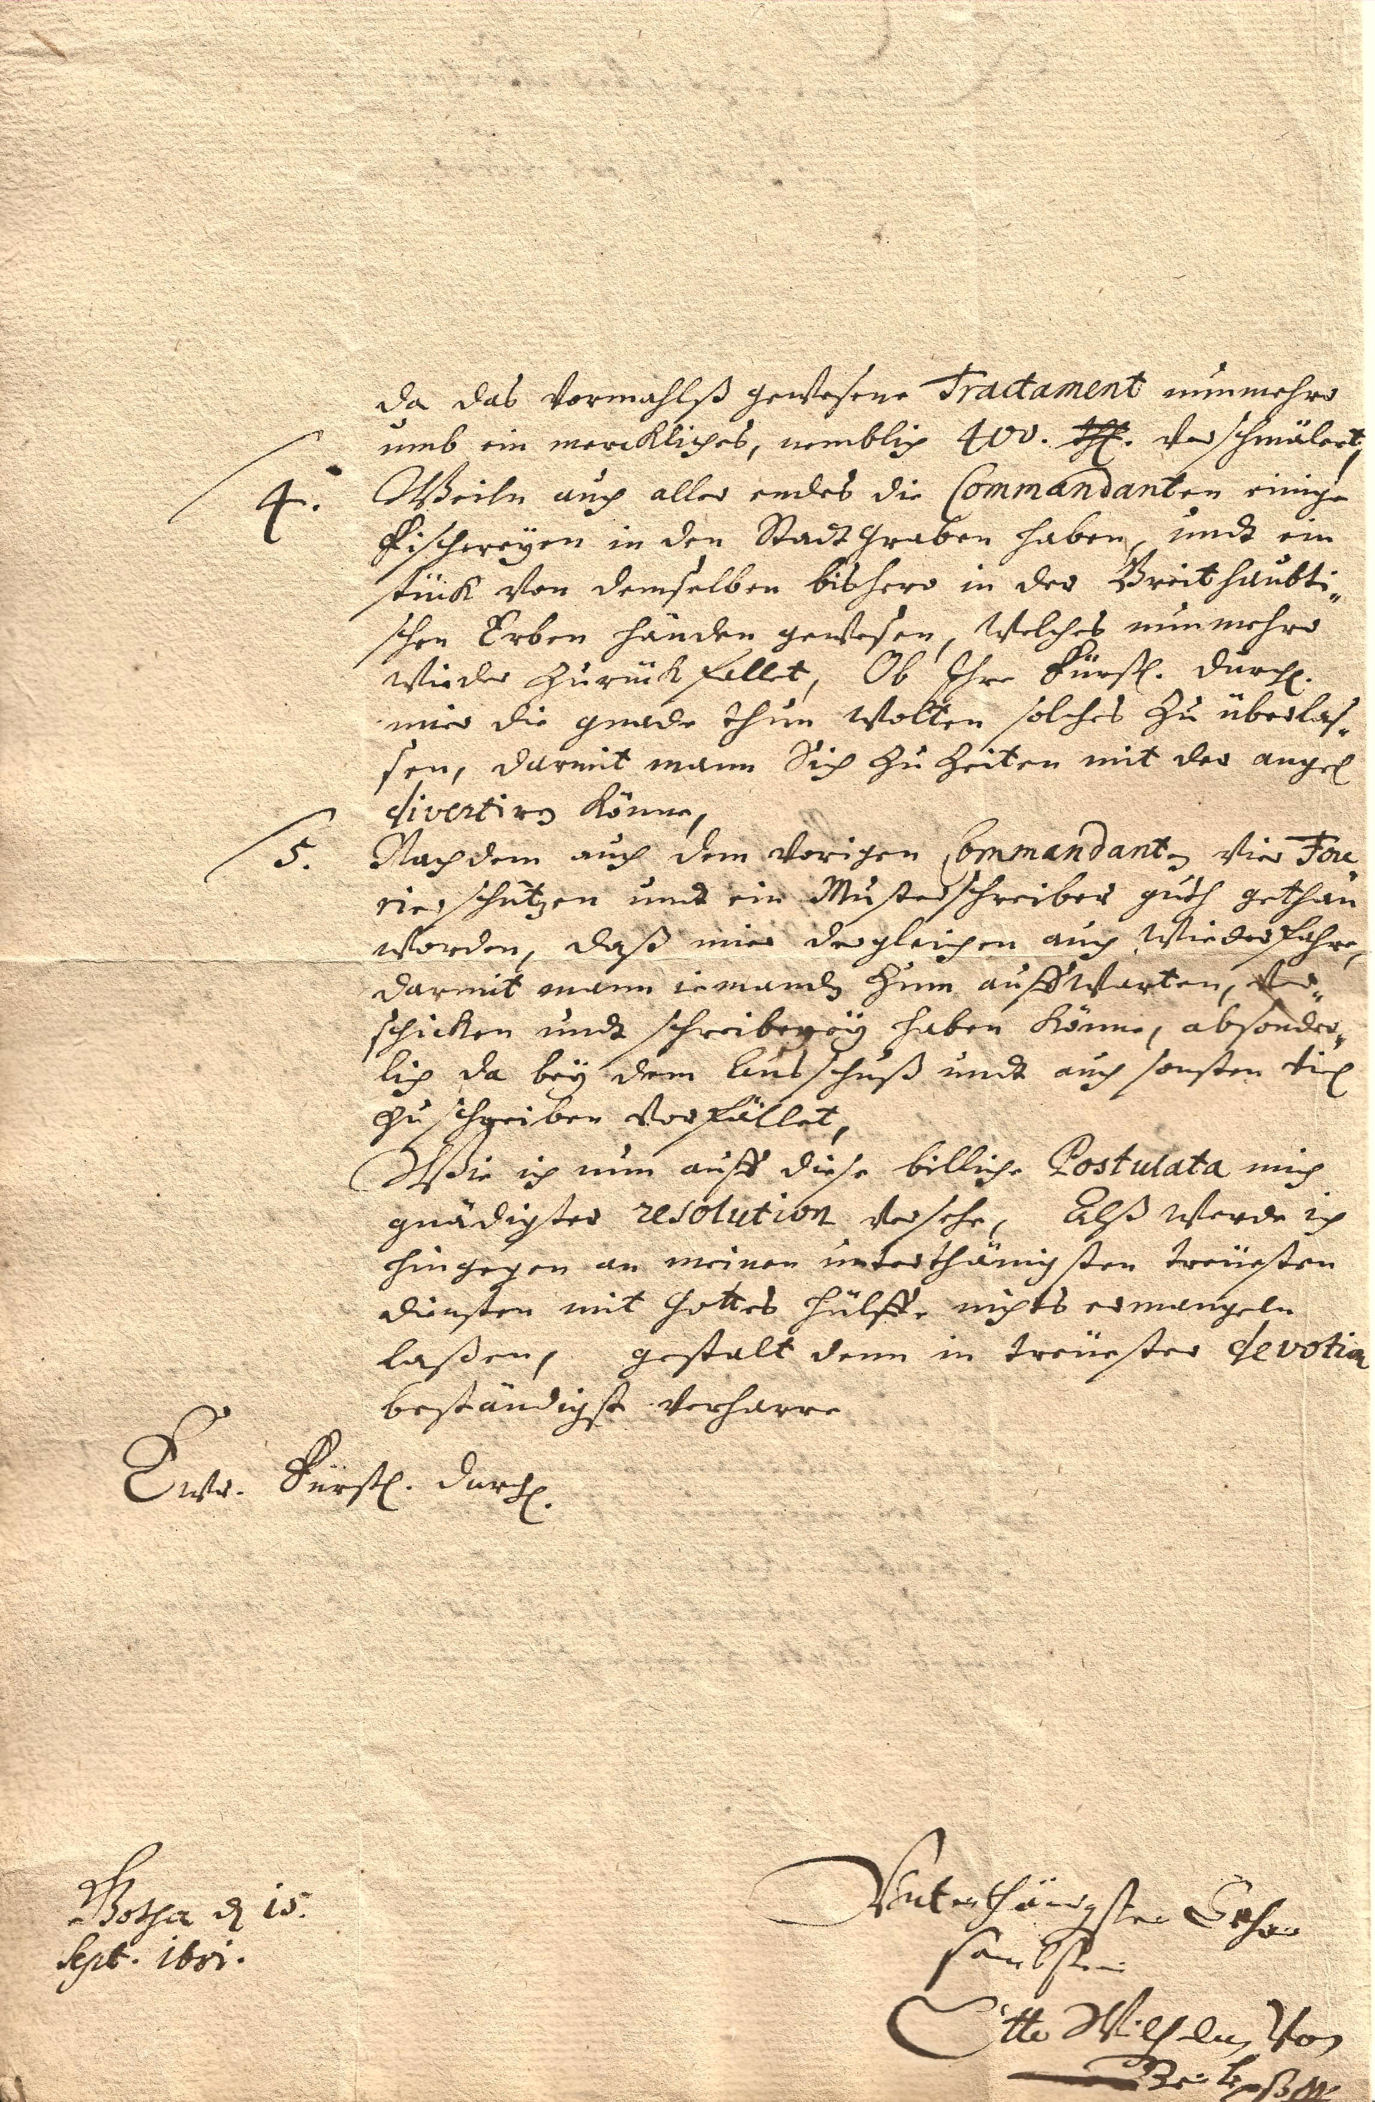 da das vormahlß gewesene Tractament nunmehro
umb ein merckliches, nemblich 400. thl. verschmälert,
4. Weiln auch aller endes die Commandanten einige
Fischereyen in den Stadtgraben haben, undt ein
stück von demselben bishero in der Breithaubti-
schen Erben händen gewesen, welches nunmehro
wieder zurück fellet, Ob Ihre Fürstl. Durchl.
mier die gnade thun wolten solches zu überlas-
sen, darmit mann Sich zu zeiten mit der angel
divertiren könne,
5. Nachdem auch dem vorigen Commandanten vier Fou
rierschützen undt ein Musterschreiber guth gethan
worden, daß mier dergleichen auch wiederfahre,
darmit mann iemandt zum auffwarten, ver-
schicken undt schreiberey haben könne, absonder-
lich da bey dem Ausschuß undt auch sonsten viel
zuschreiben vorfället,
Wie ich nun auff diese billiche Postulata mich
gnädigster resolution versehe, Alß werde ich
hingegen an meinen unterthänigsten treüesten
diensten mit Gottes hülffe nichts ermangeln
laßen, gestalt denn in treüester devotion
beständigst verharre
Ewr. Fürstl. Durchl.
Gotha d 15.
Sept. 1681.
Unterthänigster Gehor
sambster
Otto Wilhelm von